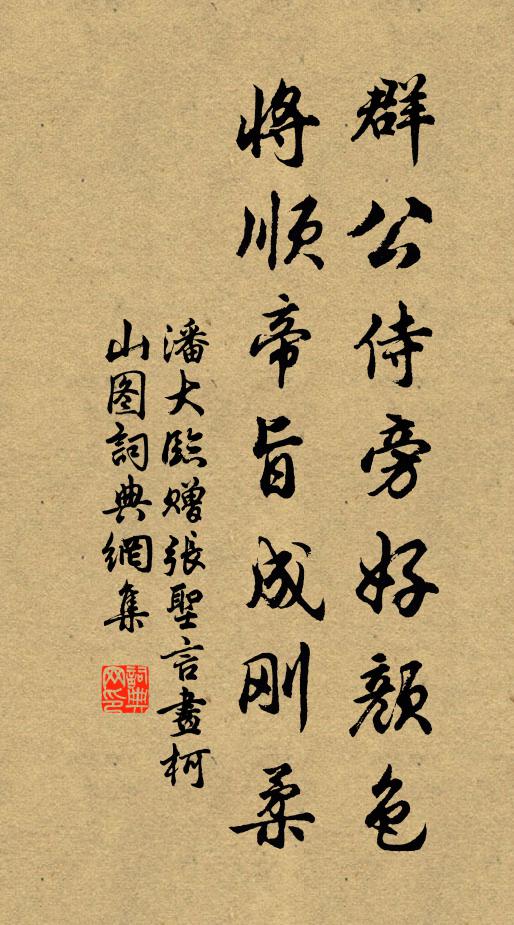 群公侍旁好颜色
将顺帝旨成刚柔
潘大临赠张聖言畫柯
山图詞典網集
詞典网印